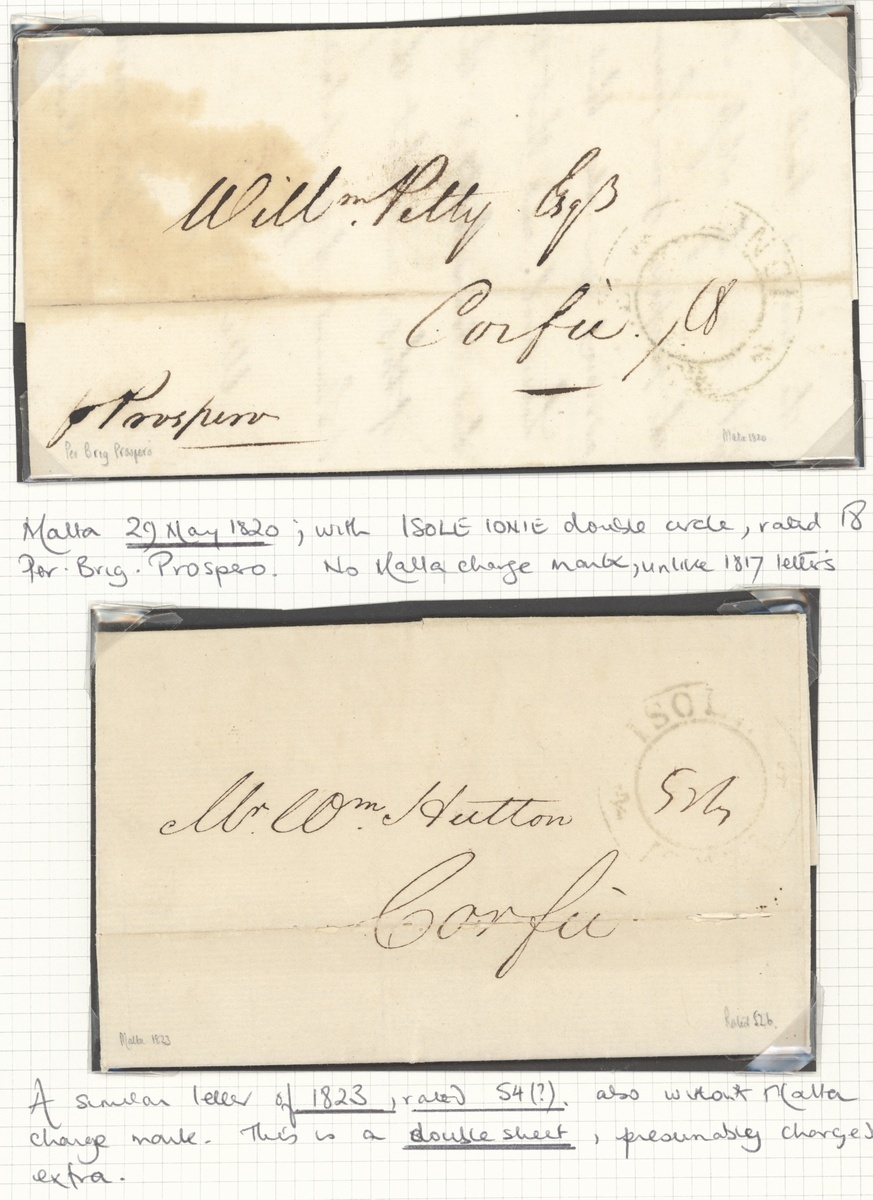 Willm. Petty Esqr
Corfu. 18
p Prospero
Per Brig Prospero
Malta 1820
Malta 29 May 1820 ; with ISOLE IONIE double circle, rated 18
Per. Brig. Prospero. No Malta charge mark, unlike 1817 letters
ISOL
Mr. Wm. Hutton
Corfu
Malta 1823
Rated 526.
A similar letter of 1823, rated 54(?). also without Malta
charge mark. This is a double sheet, presumably charged
extra.